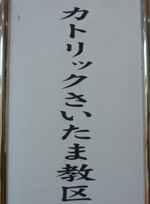 カトリックさいたま教区